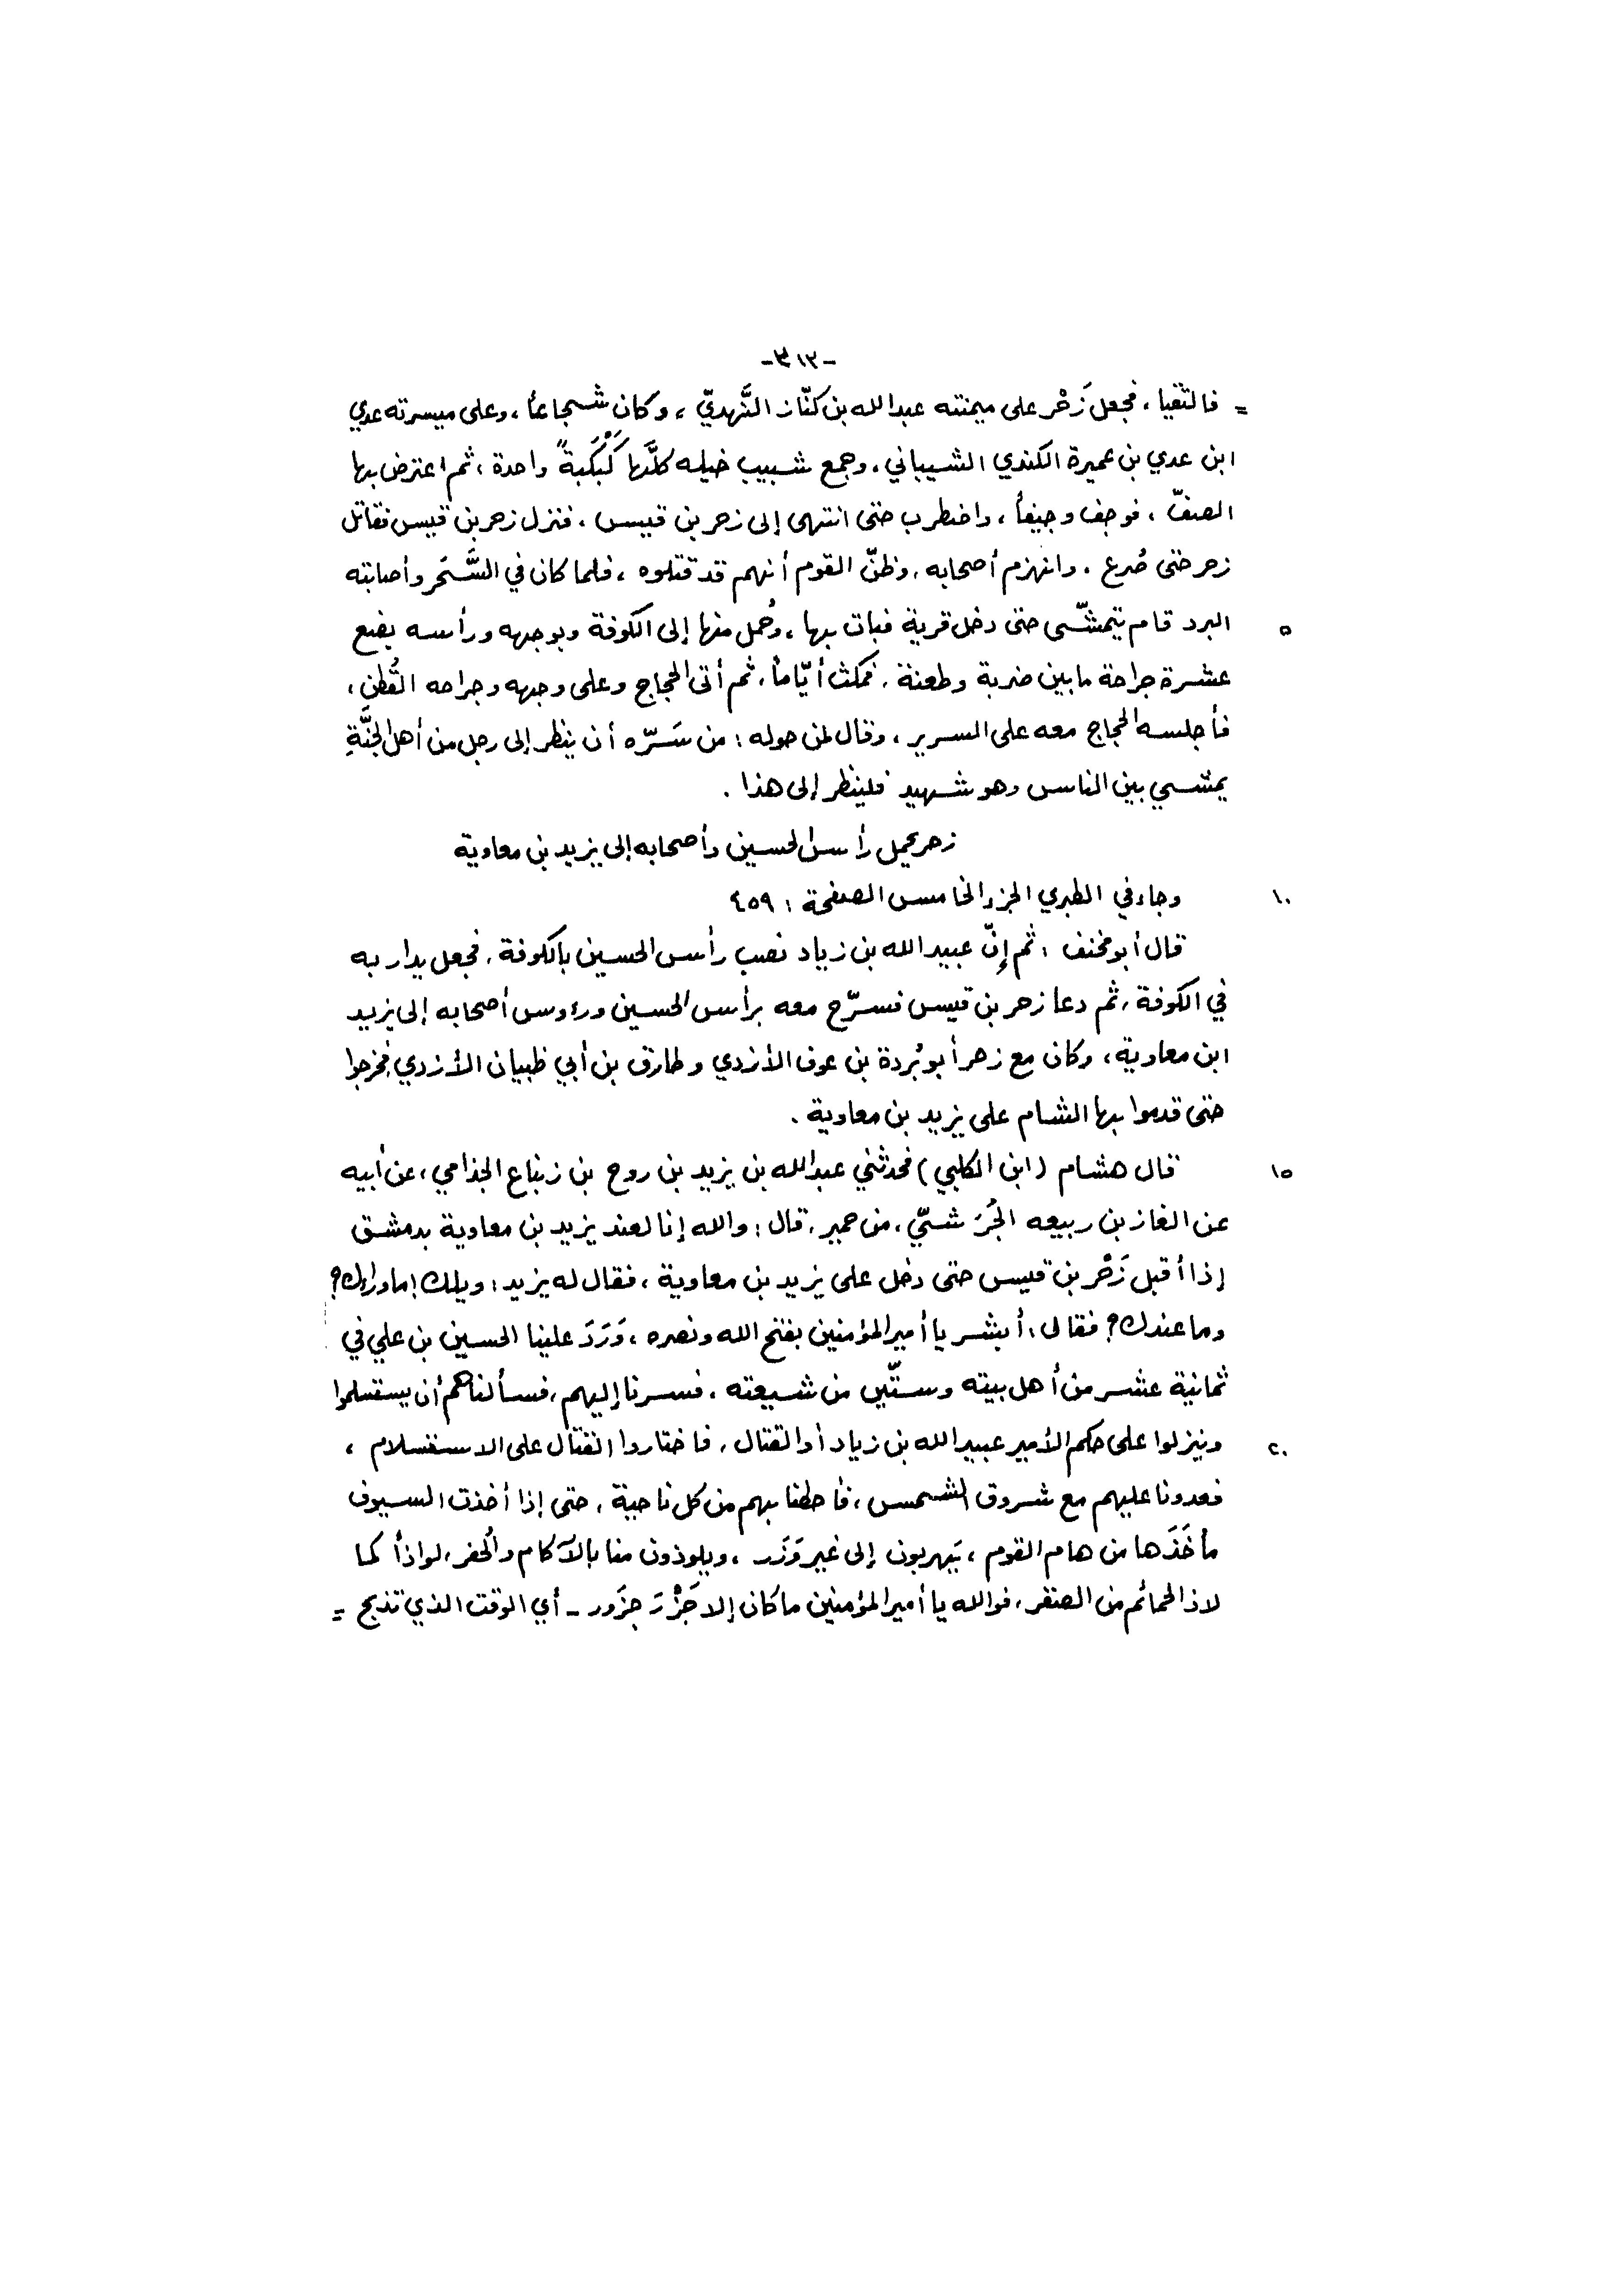 -٣١٢-
= فالتقيا ، فجعل زَحْر على ميمنته عبدالله بن كنّاز النَّهديّ ، وكان شجاعاً ، وعلى ميسرته عدي
ابن عدي بن عميرة الكندي الشيباني ، وجمع شبيب خيله كلَّها كَبْكَبةً واحدة ، ثم اعترض بها
الصفّ ، فوجف وجيفاً ، واضطرب حتى انتهى إلى زحر بن قيس ، فنزل زحر بن قيس فقاتل
زحر حتى صُرع . وانهزم أصحابه ، وظنّ القوم أنهم قد قتلوه ، فلما كان في السَّحَر وأصابته
البرد قام يتمشّى حتى دخل قرية فبات بها ، وحُمل منها إلى الكوفة وبوجهه ورأسه بضع ٥
عشرة جراحة مابين ضربة وطعنة ، فمكث أيّاماً ، ثم أتى الحجاج وعلى وجهه وجراحه القُطن ،
فأجلسه الحجاج معه على السرير ، وقال لمن حوله : من سَرّه أن ينظر إلى رجل من أهل الجنَّةِ
يمشي بين الناس وهو شهيد فلينظر إلى هذا .
زحر يحمل رأس الحسين وأصحابه إلى يزيد بن معاوية
وجاء في الطبري الجزء الخامس الصفحة : ٤٥٩ ١٠
قال أبو مخنف : ثم إنّ عبيدالله بن زياد نصب رأس الحسين بالكوفة ، فجعل يدار به
في الكوفة ، ثم دعا زحر بن قيس فسرّح معه برأس الحسين ورءوس أصحابه إلى يزيد
ابن معاوية ، وكان مع زحر أبو بُردة بن عوف الأزدي وطارق بن أبي ظبيان الأزدي فخرجوا
حتى قدموا بها الشام على يزيد بن معاوية .
قال هشام (ابن الكلبي) فحدثني عبدالله بن يزيد بن روح بن زنباع الجذامي ، عن أبيه ١٥
عن الغاز بن ربيعه الجُرَشيّ ، من حمير ، قال : والله إنا لعند يزيد بن معاوية بدمشق
إذا أقبل زَحْر بن قيس حتى دخل على يزيد بن معاوية ، فقال له يزيد : ويلك ! ماوراءك ؟
وما عندك ؟ فقال : أبشر يا أمير المؤمنين بفتح الله ونصره ، وَرَدَ علينا الحسين بن علي في
ثمانية عشر من أهل بيته وستّين من شيعته ، فسرنا إليهم ، فسألناهم أن يستسلموا
وينزلوا على حكم الأمير عبيدالله بن زياد أو القتال ، فاختاروا القتال على الاستسلام ، ٢٠
فعدونا عليهم مع شروق الشمس ، فأحطنا بهم من كل ناحية ، حتى إذا أخذت السيوف
مأخَذَها من هام القوم ، يَهربون إلى غير وَزَر ، ويلوذون منا بالآكام والحُفر ، لواذاً كما
لاذ الحمائم من الصقر ، فوالله يا أمير المؤمنين ما كان إلا جَزْرَ جزَور - أي الوقت الذي تذبح =